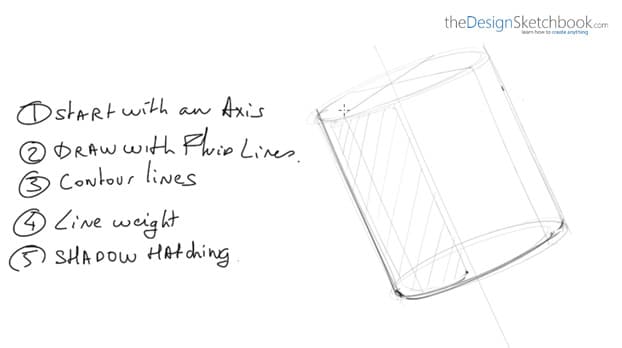 theDesignSketchbook.com
learn how to create anything
① START with an Axis
② DRAW with Fluid Lines.
③ Contour lines
④ Line weight
⑤ SHADOW HAtching